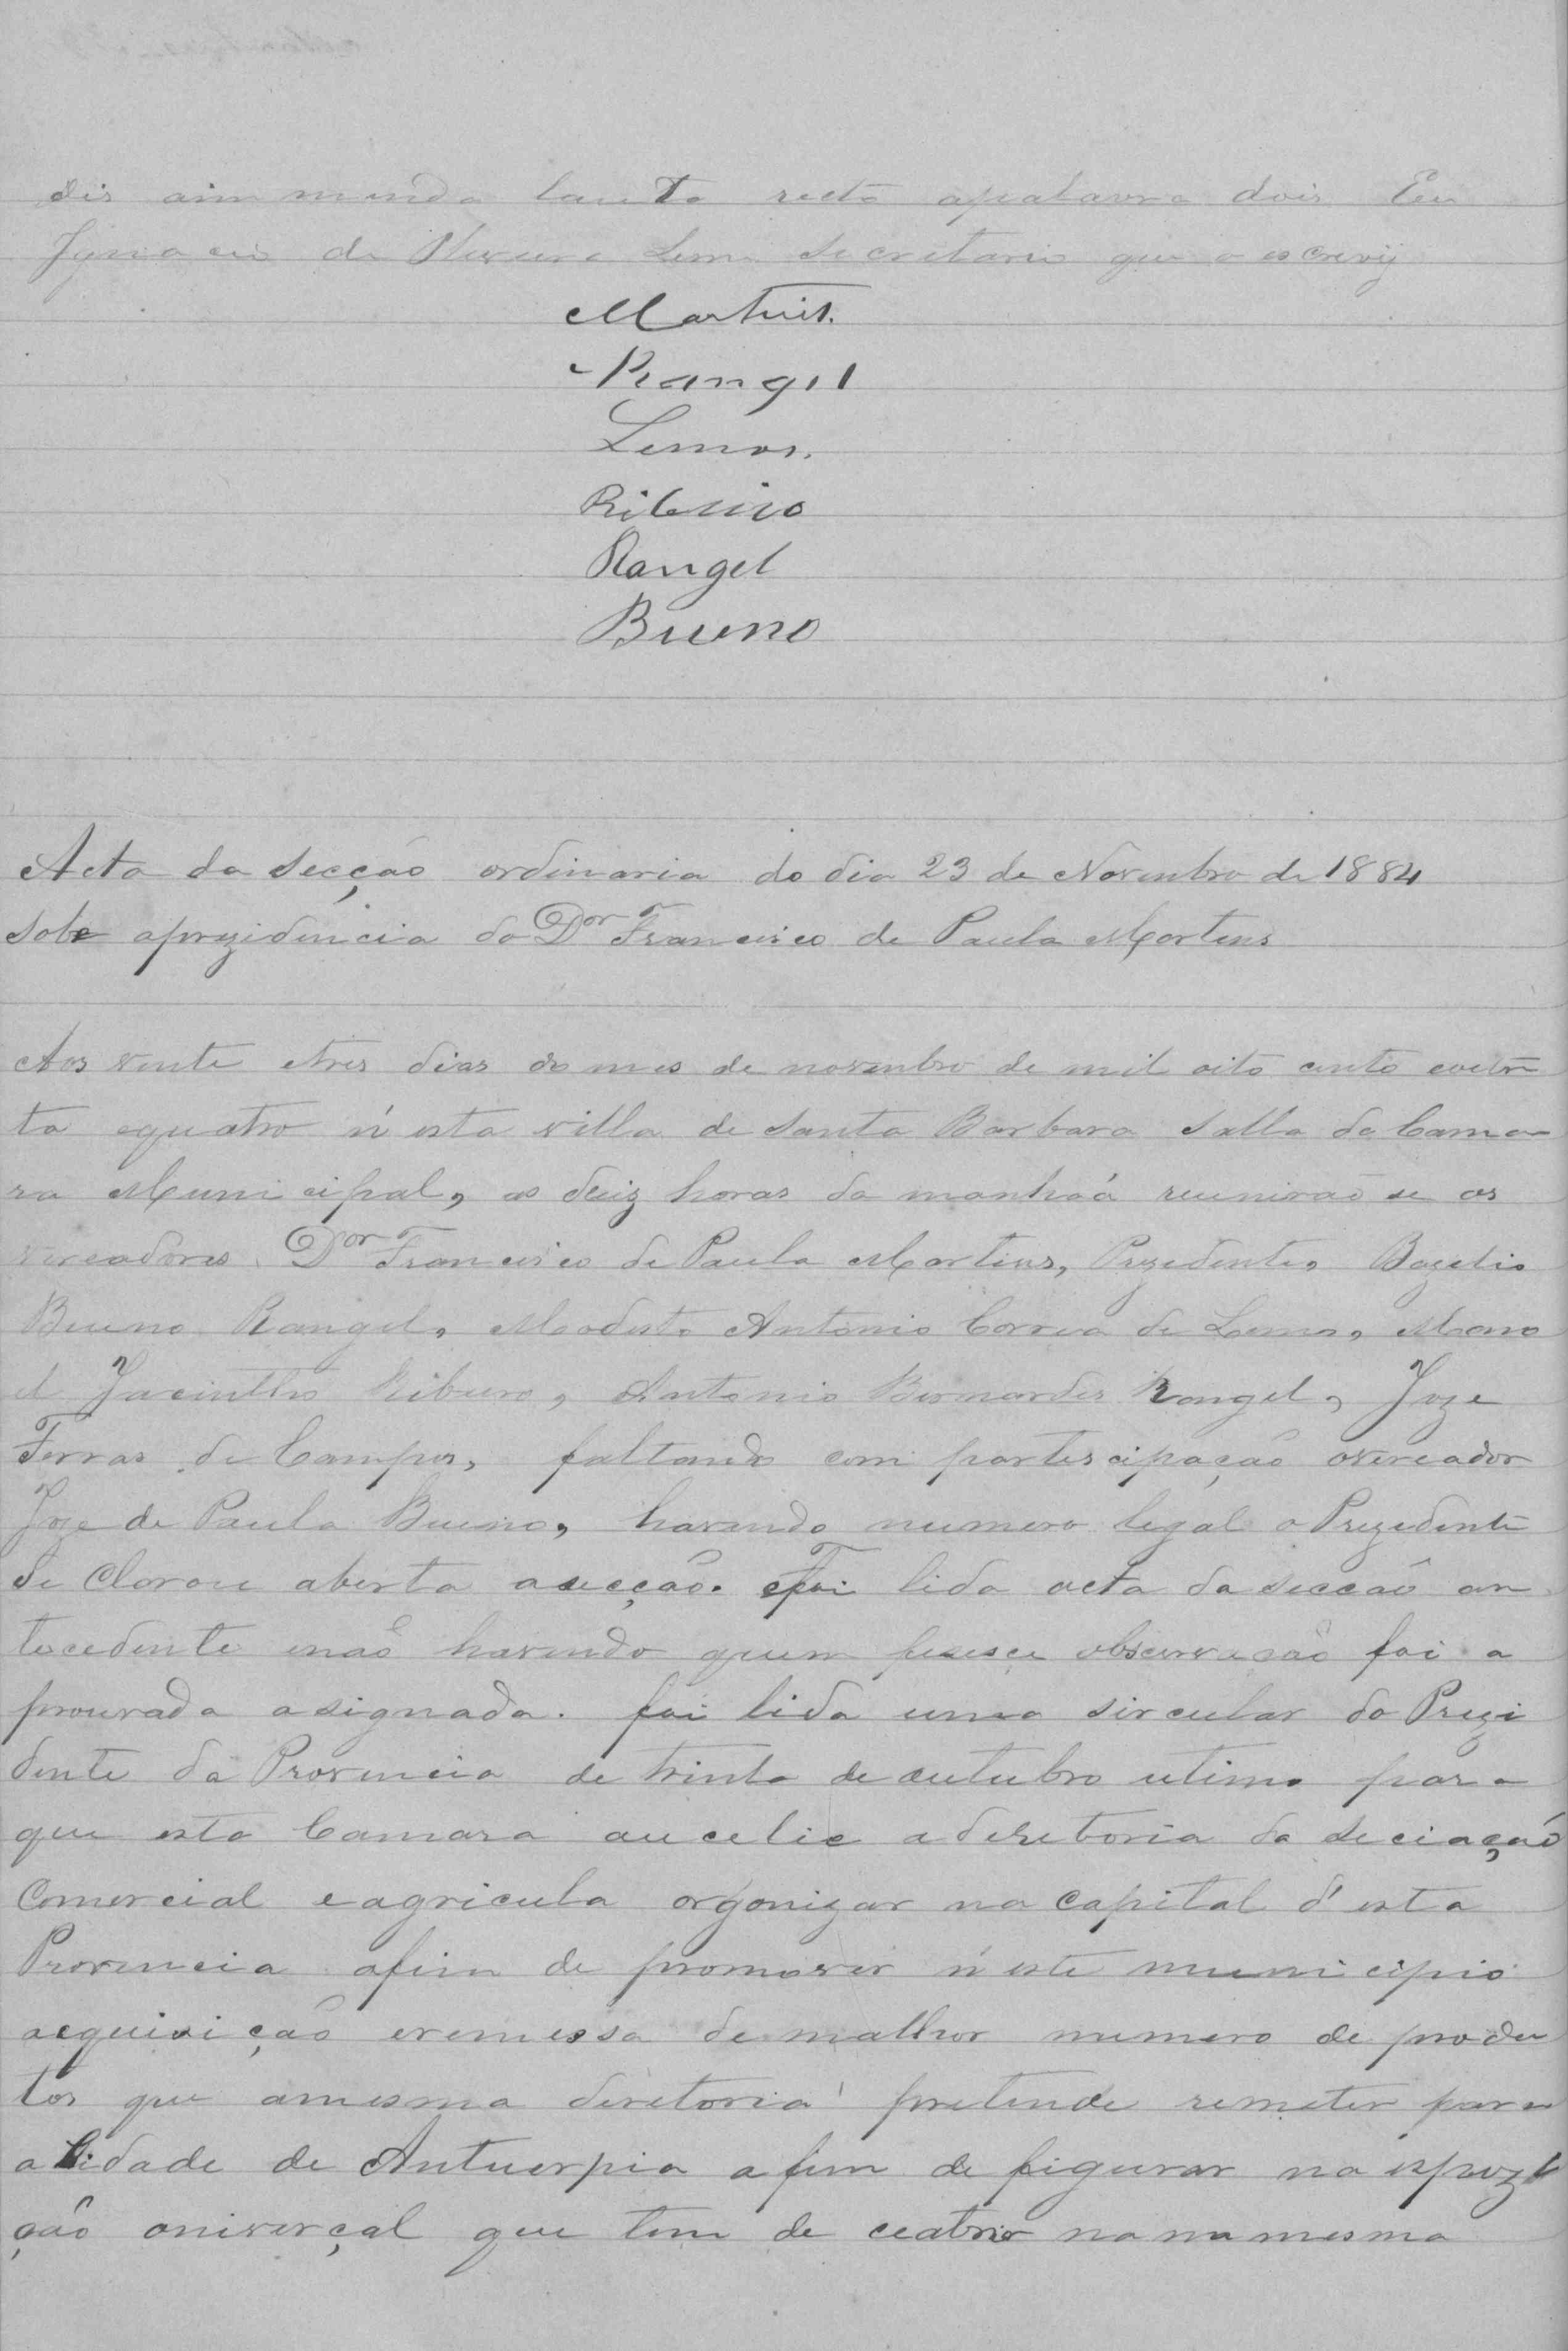 dis aim munda tanto recto apalavra dois Eu
Ignacio de Lima Secretario que o escrevy
Martins.
Rangel
Lemos.
Ribeiro
Rangel
Bueno
Acta da secção ordinaria do dia 23 de Novembro de 1884
sobe aprezidencia do Dor Francisco de Paula Martins
Aos vente etres dias do mes de novembro de mil oito cento eoiten
ta equatro n'esta villa de Santa Barbara Salla da Cama
ra Municipal, as deiz horas da manhaá reuniraõ se os
vereadores. Dor Francisco de Paula Martins, Prezedente, Bazelio
Bueno Rangel, Modesto Antonio Correa de Lemos, Mano
el Jacintho Ribeiro, Antonio Bernardes Rangel, Joze
Ferras de Campos, faltando com partescipação overeador
Joze de Paula Bueno, havendo numero legal o Prezedente
de Clarou aberta asecção. Foi lida acta da secçaõ an
tecedente enaõ havendo quem fesese observasaõ foi a
provada asignada. foi lida uma sircular do Prezi
dente da Provencia de trinta de outubro utimo para
que esta Camara aucelie adiretoria da Seciaçaõ
Comercial eagricula orgonizar na Capital d'esta
Provencia afim de promover n'este municipio
acquisiçaõ eremessa de malhor numero de produ
tos que amesma diretoria pretende remeter para
a Cidade de Antuerpia a fim de figurar na espozi
çaõ oniverçal que tem de ceabrir na na mesma